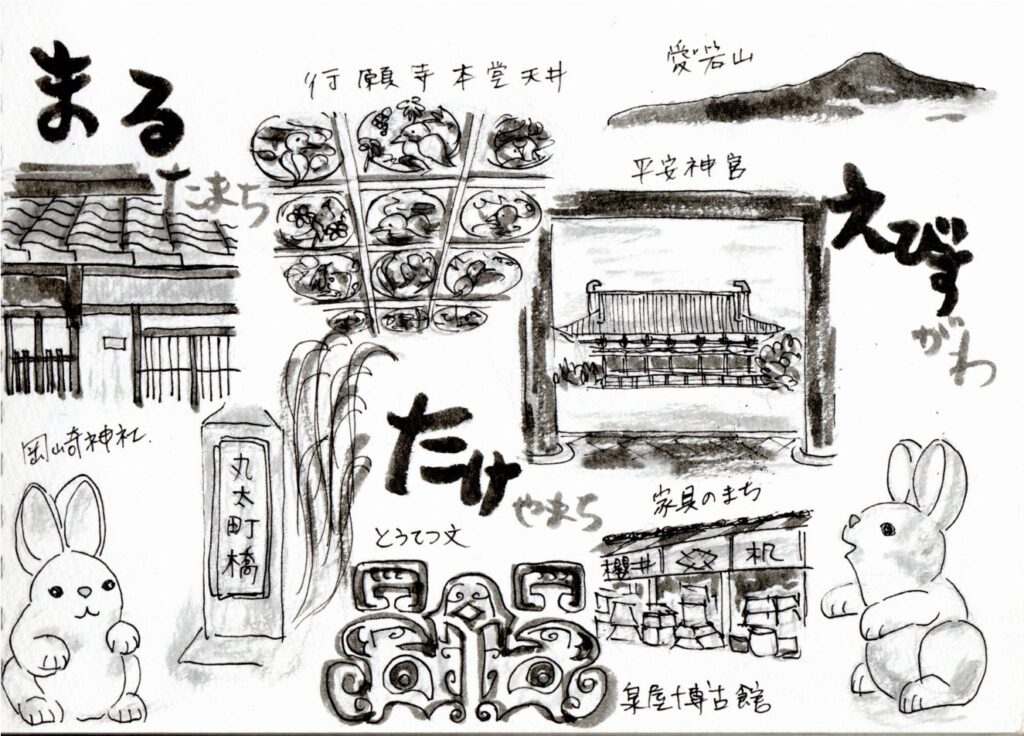 まる
たまち
行願寺本堂天井
愛宕山
平安神宮
えびす
がわ
岡崎神社
丸太町橋
たけ
やまち
とうてつ文
家具のまち
櫻井
机
泉屋博古館